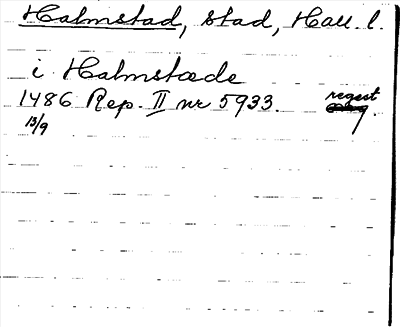 Halmstad, stad, Hall. l.
i Halmstæde
1486 Rep. II nr 5933. regest
13/9